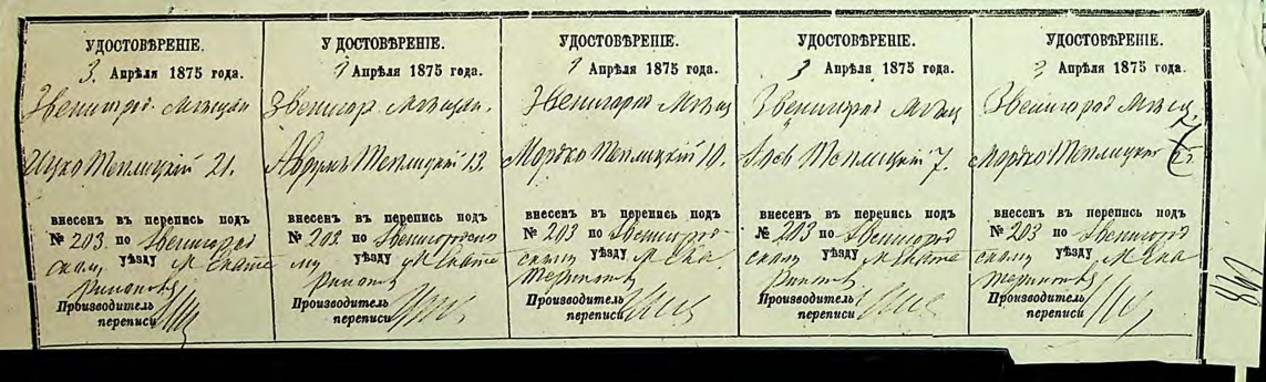 УДОСТОВѢРЕНІЕ.
3. Апрѣля 1875 года.
Звенигор. мѣщан
Ицко Теплицкій 21.
внесенъ въ перепись подъ
№ 203 по Звенигород
скому уѣзду М Екате
ринополь
Производитель
переписи
У ДОСТОВѢРЕНІЕ.
Апрѣля 1875 года.
Звенигор. мѣщан.
Аврумъ Теплицкій 13.
внесенъ въ перепись подъ
№ 203 по Звенигородско
му уѣзду М Екате
ринополь
Производитель
переписи
УДОСТОВѢРЕНІЕ.
Апрѣля 1875 года.
Звенигород мѣщ
Мордко Теплицкій 10.
внесенъ въ перепись подъ
№ 203 по Звенигород
скому уѣзду М Ека
теринополь
Производитель
переписи
УДОСТОВѢРЕНІЕ.
3 Апрѣля 1875 года.
Звенигород мѣщ
Теплицкій 7.
внесенъ въ перепись подъ
№ 203 по Звенигород
скому уѣзду М Екате
ринополь
Производитель
переписи
УДОСТОВѢРЕНІЕ.
3 Апрѣля 1875 года.
Звенигород мѣщ.
Мордко Теплицкій
внесенъ въ перепись подъ
№ 203 по Звенигород
скому уѣзду М Ека
теринополь
Производитель
переписи